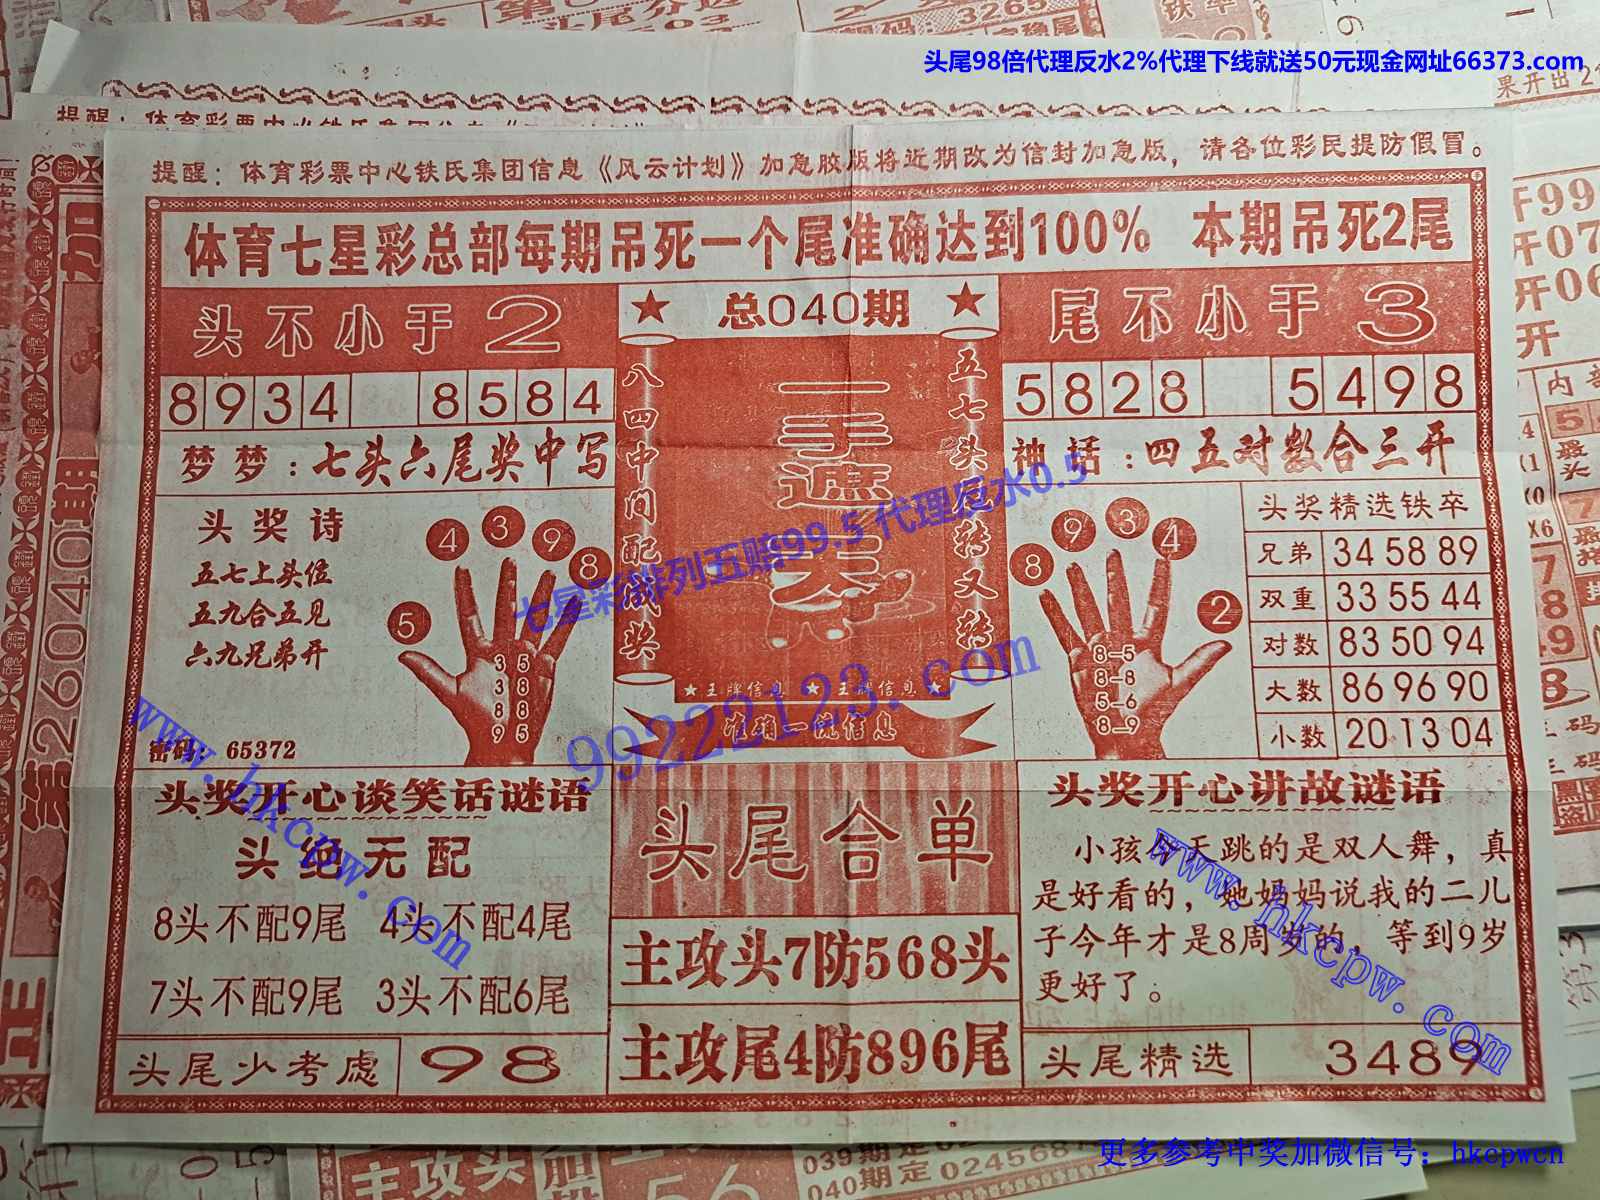 头尾98倍代理反水2%代理下线就送50元现金网址66373.com
提醒：体育彩票中心铁氏集团信息《风云计划》加急胶版将近期改为信封加急版，请各位彩民提防假冒。
体育七星彩总部每期吊死一个尾准确达到100% 本期吊死2尾
头不小于2
总040期
尾不小于3
8934 8584
5828 5498
梦梦：七头六尾奖中写
神话：四五对数合三开
八四中间配成奖
一手遮天
五七头尾转又转
头奖诗
五七上头位
五九合五见
六九兄弟开
密码：65372
4 3 9 8 5
3 5
3 8
8 8
9 5
8 9 3 4 2
8-5
8-8
5-6
8-9
头奖精选铁卒
兄弟 34 58 89
双重 33 55 44
对数 83 50 94
大数 86 96 90
小数 20 13 04
王牌信息 王牌信息
准确一流信息
头奖开心谈笑话谜语
头绝无配
8头不配9尾 4头不配4尾
7头不配9尾 3头不配6尾
头尾少考虑 98
头尾合单
主攻头7防568头
主攻尾4防896尾
头奖开心讲故谜语
小孩今天跳的是双人舞，真
是好看的，她妈妈说我的二儿
子今年才是8周岁的，等到9岁
更好了。
头尾精选 3489
七星彩排列五赔99.5 代理反水0.5
99222123.com
www.hkcpw.com
www.hkcpw.com
第26040期
039期定
040期定 0245681
更多参考中奖加微信号：hkcpwcn